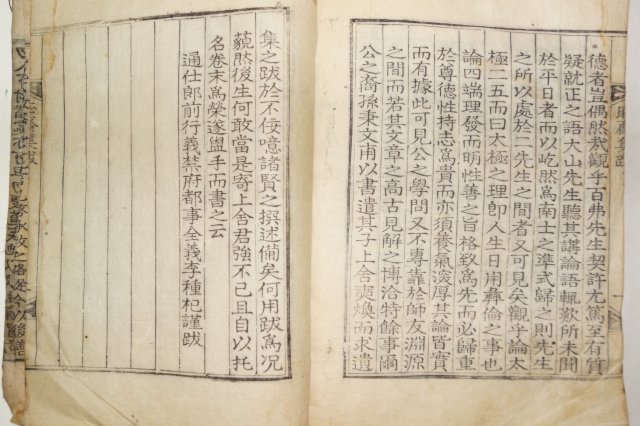 德者豈偶然哉觀乎百弗先生契許尤篤至有質
疑就正之語大山先生聽其講論語輒歎所未聞
於平日者而以屹然爲南士之準式歸之則先生
之所以處於二先生之間者又可見矣觀乎論太
極二五而曰太極之理卽人生日用彛倫之事也
論四端理發而明性善之旨格致爲先而必歸重
於尊德性持志爲貴而亦須養氣深厚其論皆實
而有據此可見公之學問又不專靠於師友淵源
之間而若其文章之高古見解之博洽特餘事爾
公之裔孫秉文甫以書遣其子上舍奭煥而求遺
集之跋於不佞噫諸賢之撰述備矣何用跋爲况
藐然後生何敢當是寄上舍君強不已且自以托
名卷末爲榮遂盥手而書之云
通仕郎前行義禁府都事全義李種杞謹跋